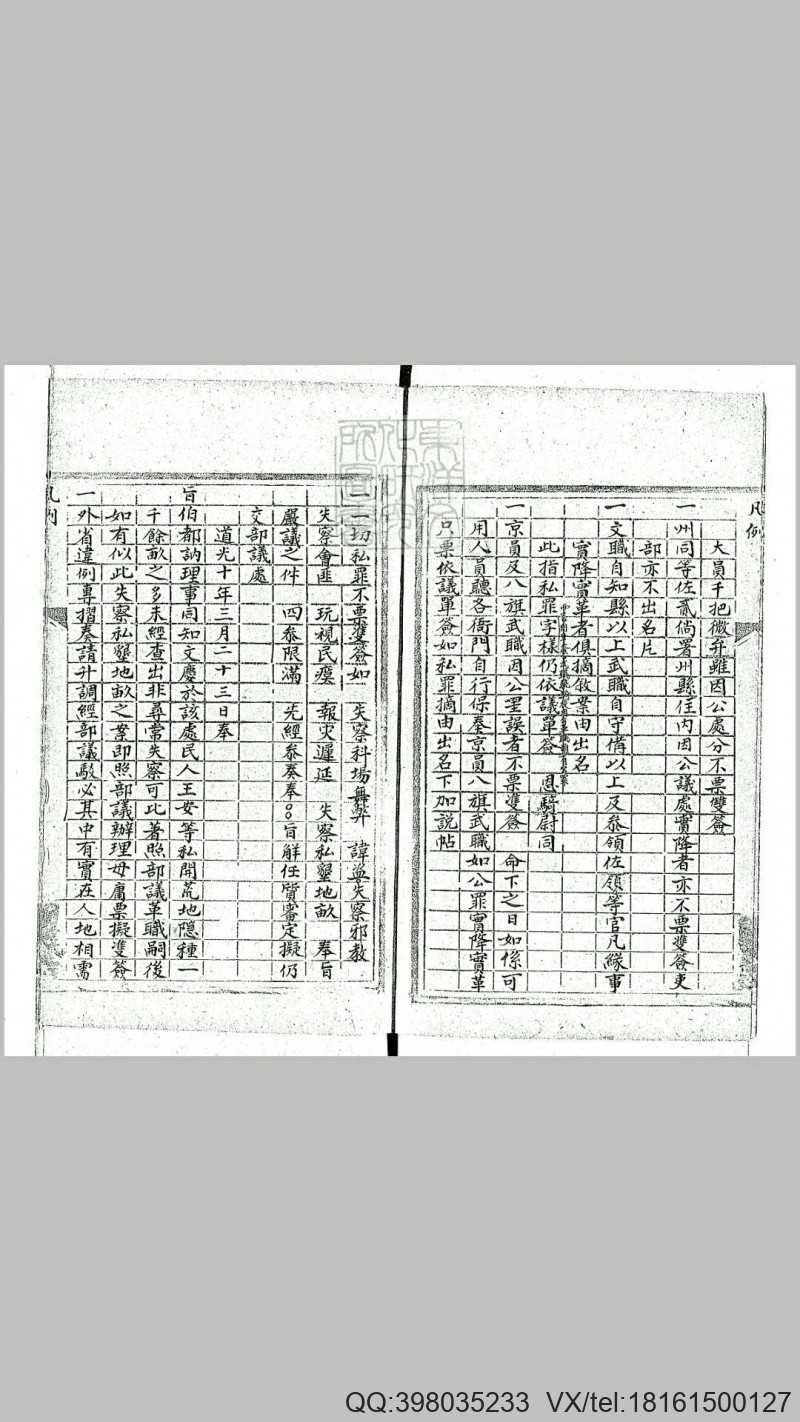 凡例
大員千把微弁雖因公處分不票雙簽
一州同等佐貳倘署州縣任內因公議處實降者亦不票雙簽吏
部亦不出名片
一文職自知縣以上武職自守備以上及叅領佐領等官凡緣事
實降實革者俱摘敘案由出名
此指私罪字樣仍依議單簽 恩騎尉同
一京員及八旗武職因公罣誤者不票雙簽 命下之日如係可
用人員聽各衙門自行保奏京員八旗武職如公罪實降實革
只票依議單簽如私罪摘由出名下加説帖
一一切私罪不票雙簽如 失察科場舞弊 諱盜失察邪教
失察會匪 玩視民瘼 報灾遲延 失察私墾地畝 奉旨
嚴議之件 四叅限滿 先經叅奏奉旨解任質審定擬仍
交部議處
道光十年三月二十三日奉
旨伯都訥理事同知文慶於該處民人王安等私開荒地隱種一
千餘畝之多未經查出非尋常失察可比著照部議革職嗣後
如有似此失察私墾地畝之案即照部議辦理毋庸票擬雙簽
一外省違例專摺奏請升調經部議駁必其中有實在人地相需
凡例
QQ:398035233 VX/tel:18161500127